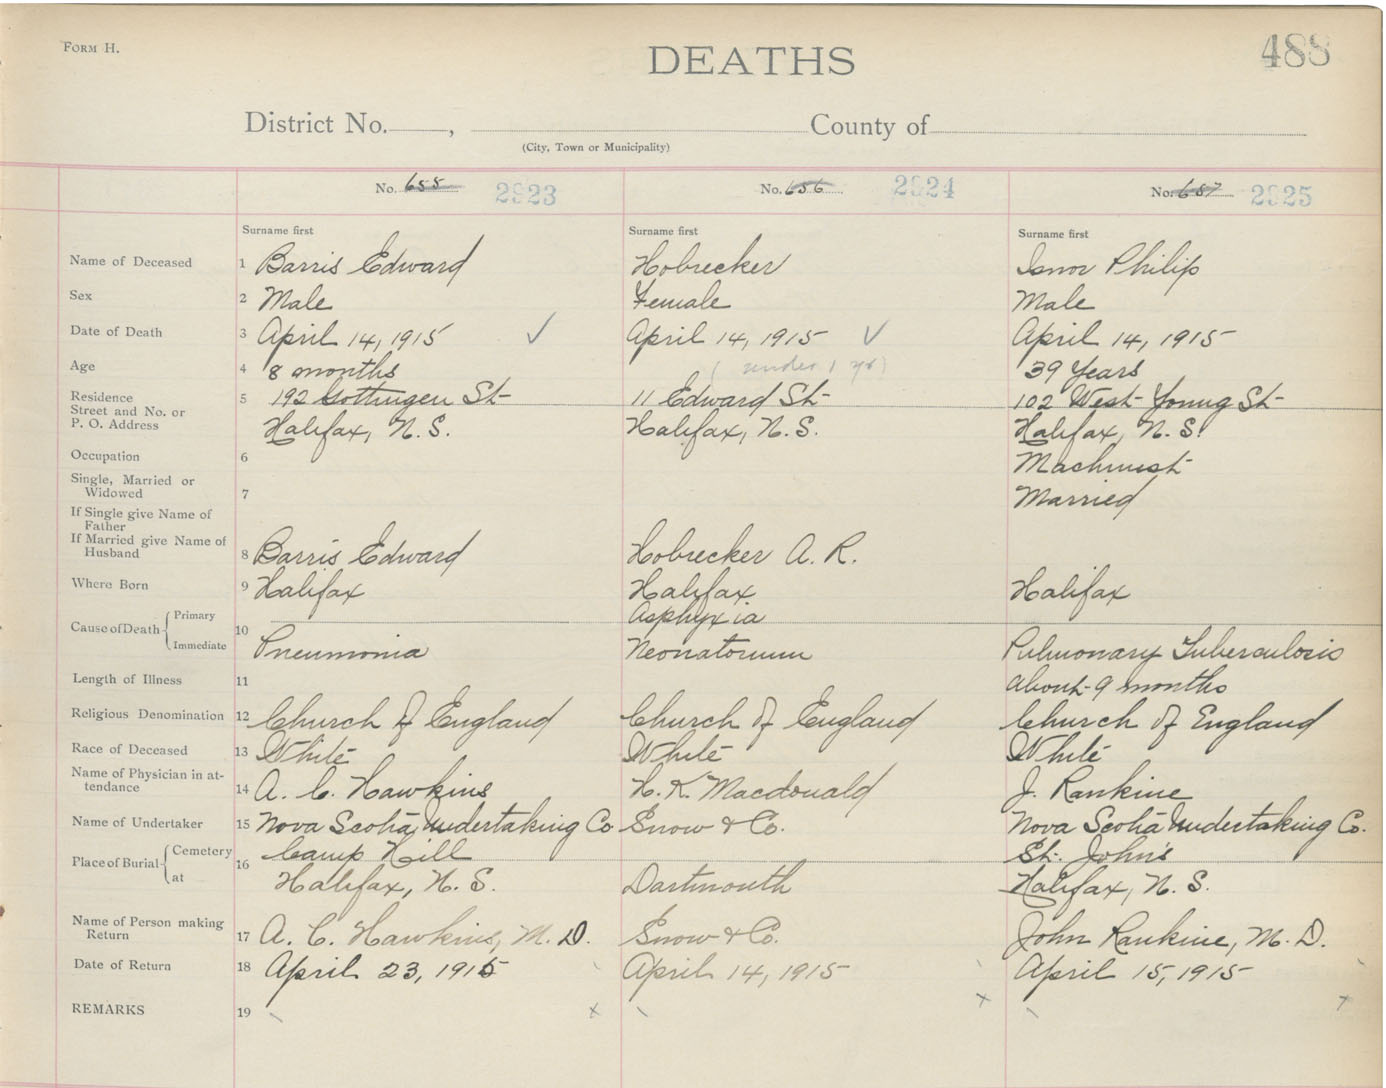 FORM H.
DEATHS
488
District No. , County of
(City, Town or Municipality)
No. 655 2923 No. 656 2924 No. 657 2925
Surname first Surname first Surname first
Name of Deceased 1 Barris Edward Hobrecker Isnor Philip
Sex 2 Male Female Male
Date of Death 3 April 14, 1915 ✓ April 14, 1915 ✓ April 14, 1915
Age 4 8 months (under 1 yr) 39 Years
Residence 5 192 Gottingen St 11 Edward St 102 West Young St
Street and No. or
P. O. Address Halifax, N.S. Halifax, N.S. Halifax, N.S.
Occupation 6 Machinist
Single, Married or
Widowed 7 Married
If Single give Name of
Father
If Married give Name of
Husband 8 Barris Edward Hobrecker A. R.
Where Born 9 Halifax Halifax Halifax
Cause of Death Primary 10 Asphyxia
Immediate Pneumonia Neonatorum Pulmonary Tuberculosis
Length of Illness 11 about 9 months
Religious Denomination 12 Church of England Church of England Church of England
Race of Deceased 13 White White White
Name of Physician in at-
tendance 14 A. C. Hawkins H. K. Macdonald J. Rankine
Name of Undertaker 15 Nova Scotia Undertaking Co Snow & Co. Nova Scotia Undertaking Co.
Place of Burial Cemetery 16 Camp Hill St. John's
at Halifax, N.S. Dartmouth Halifax, N.S.
Name of Person making
Return 17 A. C. Hawkins, M. D. Snow & Co. John Rankine, M. D.
Date of Return 18 April 23, 1915 April 14, 1915 April 15, 1915
REMARKS 19 x x x